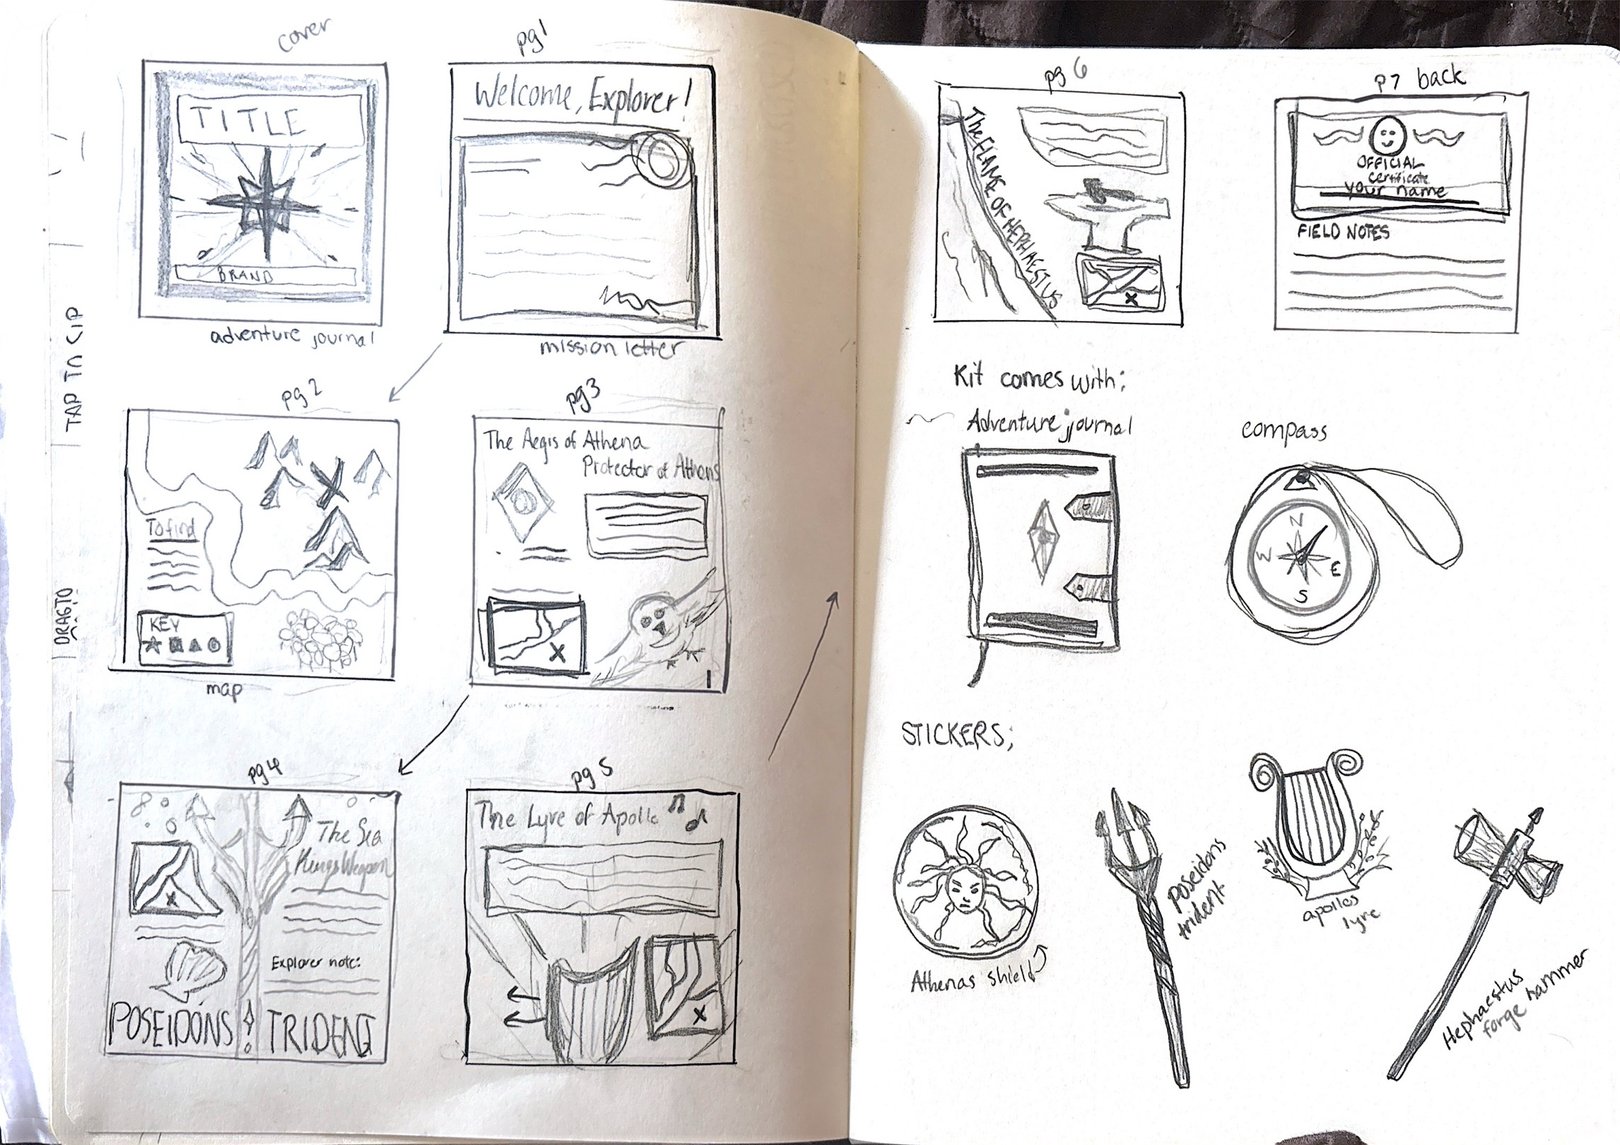 cover
TITLE
BRAND
adventure journal
pg 1
Welcome, Explorer!
mission letter
pg 2
To find
KEY
map
pg 3
The Aegis of Athena
Protector of Athens
X
1
pg 4
The Sea
Kings Weapon
x
Explorer note:
POSEIDONS TRIDENT
pg 5
The Lyre of Apollo
x
TAP TO
DRAG TO
pg 6
The FLAME OF HEPHAESTUS
x
p7 back
OFFICIAL
certificate
your name
FIELD NOTES
Kit comes with;
Adventure journal
compass
N
W
E
S
STICKERS;
Athenas shield
Poseidons
trident
apollos
lyre
Hephaestus
forge hammer